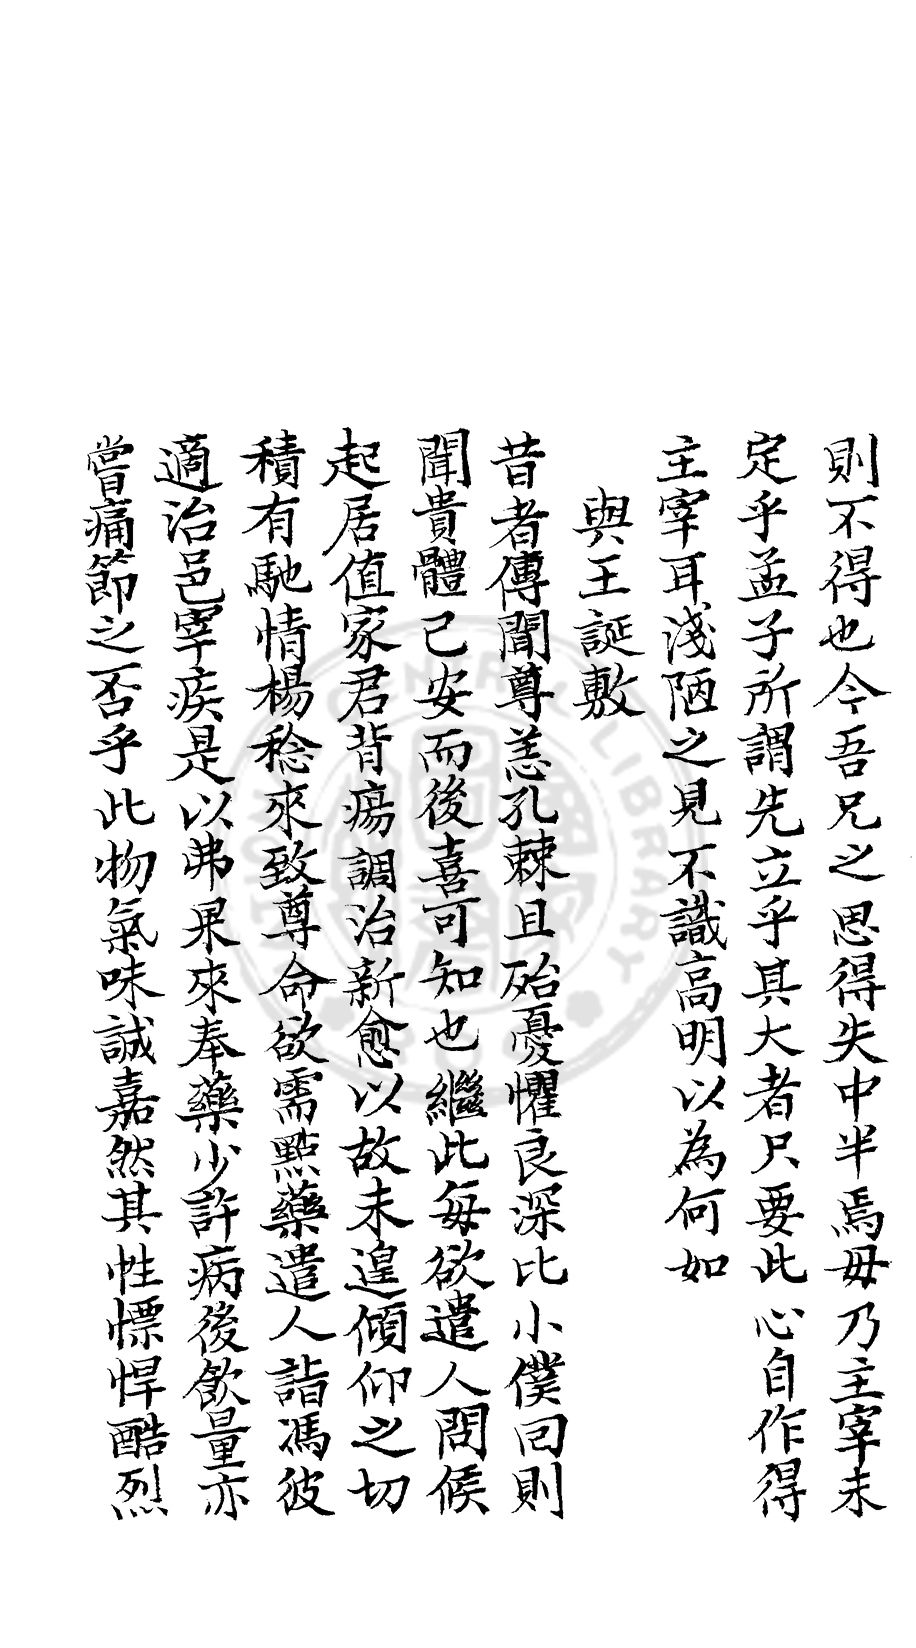 則不得也今吾兄之思得失中半焉毋乃主宰未
定乎孟子所謂先立乎其大者只要此心自作得
主宰耳淺陋之見不識高明以為何如
與王誕敷
昔者傳聞尊恙孔棘且殆憂懼良深比小僕回則
聞貴體已安而後喜可知也繼此每欲遣人問候
起居值家君背瘍調治新愈以故未遑傾仰之切
積有馳情楊稔來致尊命欲需點藥遣人詣馮彼
適治邑宰疾是以弗果來奉藥少許病後飲量亦
嘗痛節之否乎此物氣味誠嘉然其性慓悍酷烈
CENTRAL LIBRARY